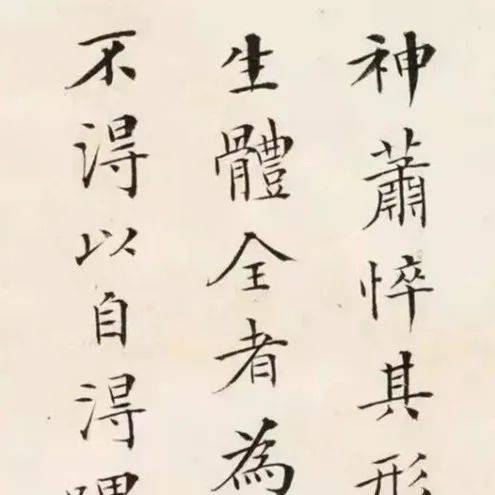 神蕭悴其形
生體全者為
不得以自得